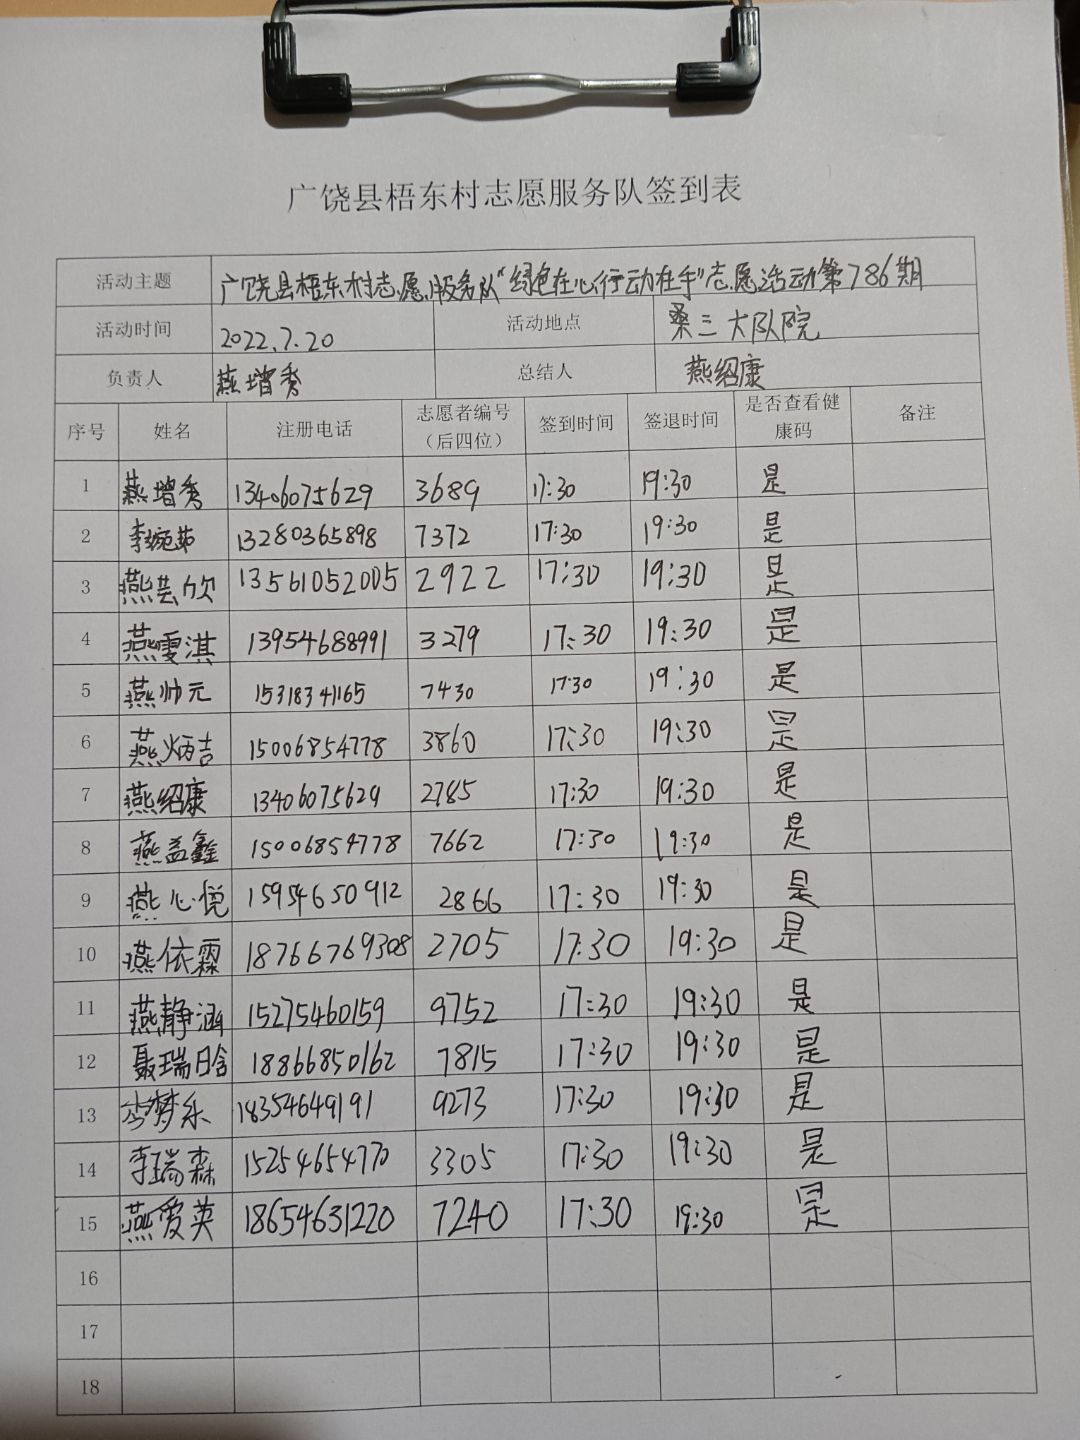 广饶县梧东村志愿服务队签到表
活动主题 广饶县梧东村志愿服务队“绿色在心行动在手”志愿活动第786期
活动时间 2022.7.20 活动地点 桑三大队院
负责人 燕增秀 总结人 燕绍康
序号 姓名 注册电话 志愿者编号（后四位） 签到时间 签退时间 是否查看健康码 备注
1 燕增秀 13406075629 3689 17:30 19:30 是
2 李婉茹 13280365898 7372 17:30 19:30 是
3 燕芸欣 13561052005 2922 17:30 19:30 是
4 燕雯淇 13954688991 3279 17:30 19:30 是
5 燕帅元 15318341165 7430 17:30 19:30 是
6 燕炳吉 15006854778 3860 17:30 19:30 是
7 燕绍康 13406075629 2785 17:30 19:30 是
8 燕益鑫 15006854778 7662 17:30 19:30 是
9 燕心悦 15954650912 2866 17:30 19:30 是
10 燕依霖 18766769308 2705 17:30 19:30 是
11 燕静涵 15275460159 9752 17:30 19:30 是
12 聂瑞晗 18866850162 7815 17:30 19:30 是
13 李梦乐 18354649191 9273 17:30 19:30 是
14 李瑞森 15254654770 3305 17:30 19:30 是
15 燕爱英 18654631220 7240 17:30 19:30 是
16
17
18